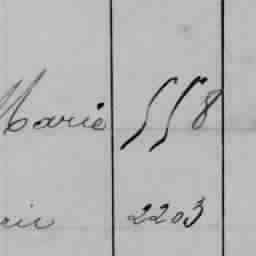 Marie 558
2203